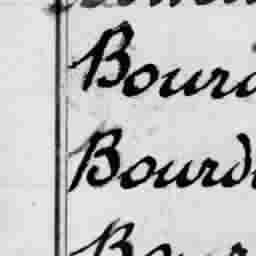 Bourd
Bourd
Bour